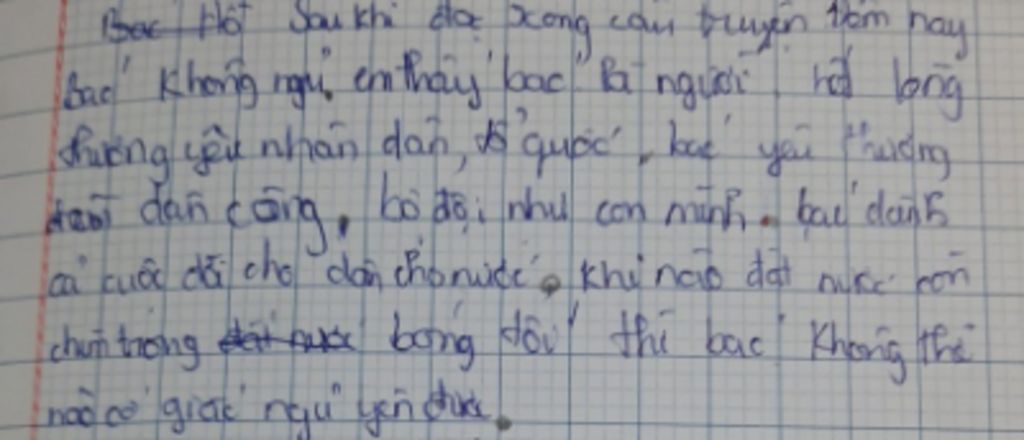 Bac Hồ Sau khi đọc xong câu truyện Đêm nay
Bác không ngủ, em thấy bác là người rất lòng
thương yêu nhân dân, tổ quốc, bác yêu thương
dân công, bộ đội như con mình. bác dành
cả cuộc đời cho dân cho nước. Khi nào đất nước còn
chìm trong đất nước bóng tối thì bác không thể
nào có giấc ngủ yên được.